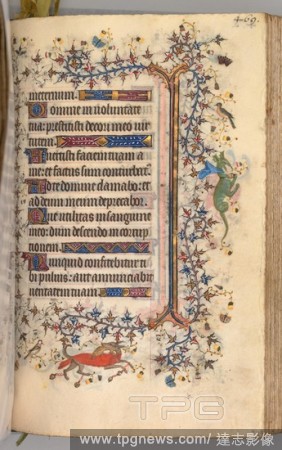 409.
in eternum.
Domine in voluntate
tua: prestitisti decori meo vir
tutem.
Avertisti faciem tuam a
me: et factus sum conturbat
Ad te domine clamabo: et
ad deum meum deprecabor.
Que utilitas in sanguine
meo: dum descendo in corrup
tionem.
Nunquid confitebitur ti
bi pulvis: aut annunciabit
veritatem tuam.
TPG
www.tpgnews.com/ 達志影像